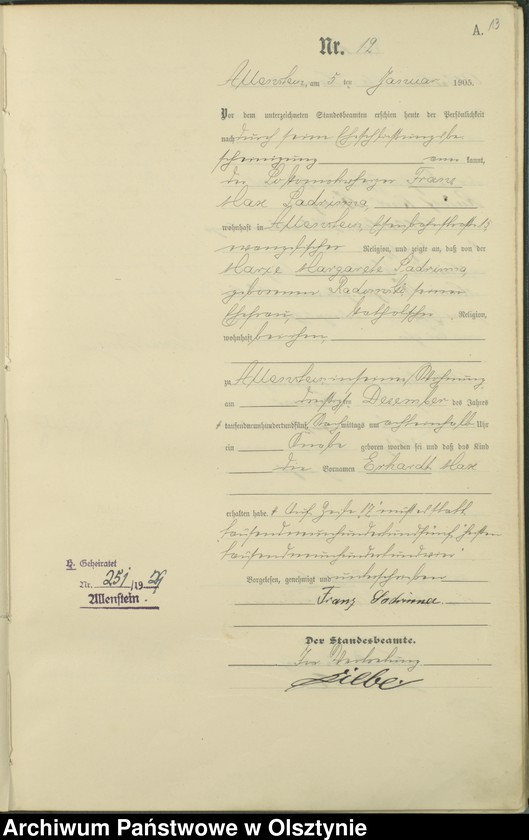 A. 13
Nr. 12
Allenstein, am 5 ten Januar 1905.
Vor dem unterzeichneten Standesbeamten erschien heute der Persönlichkeit
nach durch seine Eheschließungsbe
scheinigung kannt,
Franz
Max Sadrinna,
wohnhaft in Allenstein,
evangelischer Religion, und zeigte an, daß von der
Marie Margarete Sadrinna
geborenen seiner
Ehefrau, katholischer Religion,
wohnhaft bei ihm,
zu Allenstein in seiner Wohnung
am dreißigsten December des Jahres
tausendneunhundertundfünf Nachmittags um Uhr
ein Knabe geboren worden sei und daß das Kind
die Vornamen Erhardt Max
erhalten habe. Auf Zeile 17 muß es statt
tausendneunhundertundfünf heißen
tausendneunhundertundvier
Vorgelesen, genehmigt und unterschrieben
Franz Sadrinna
Der Standesbeamte.
In Vertretung
H. Geheiratet
Nr. 251/1929
Allenstein.
Archiwum Państwowe w Olsztynie